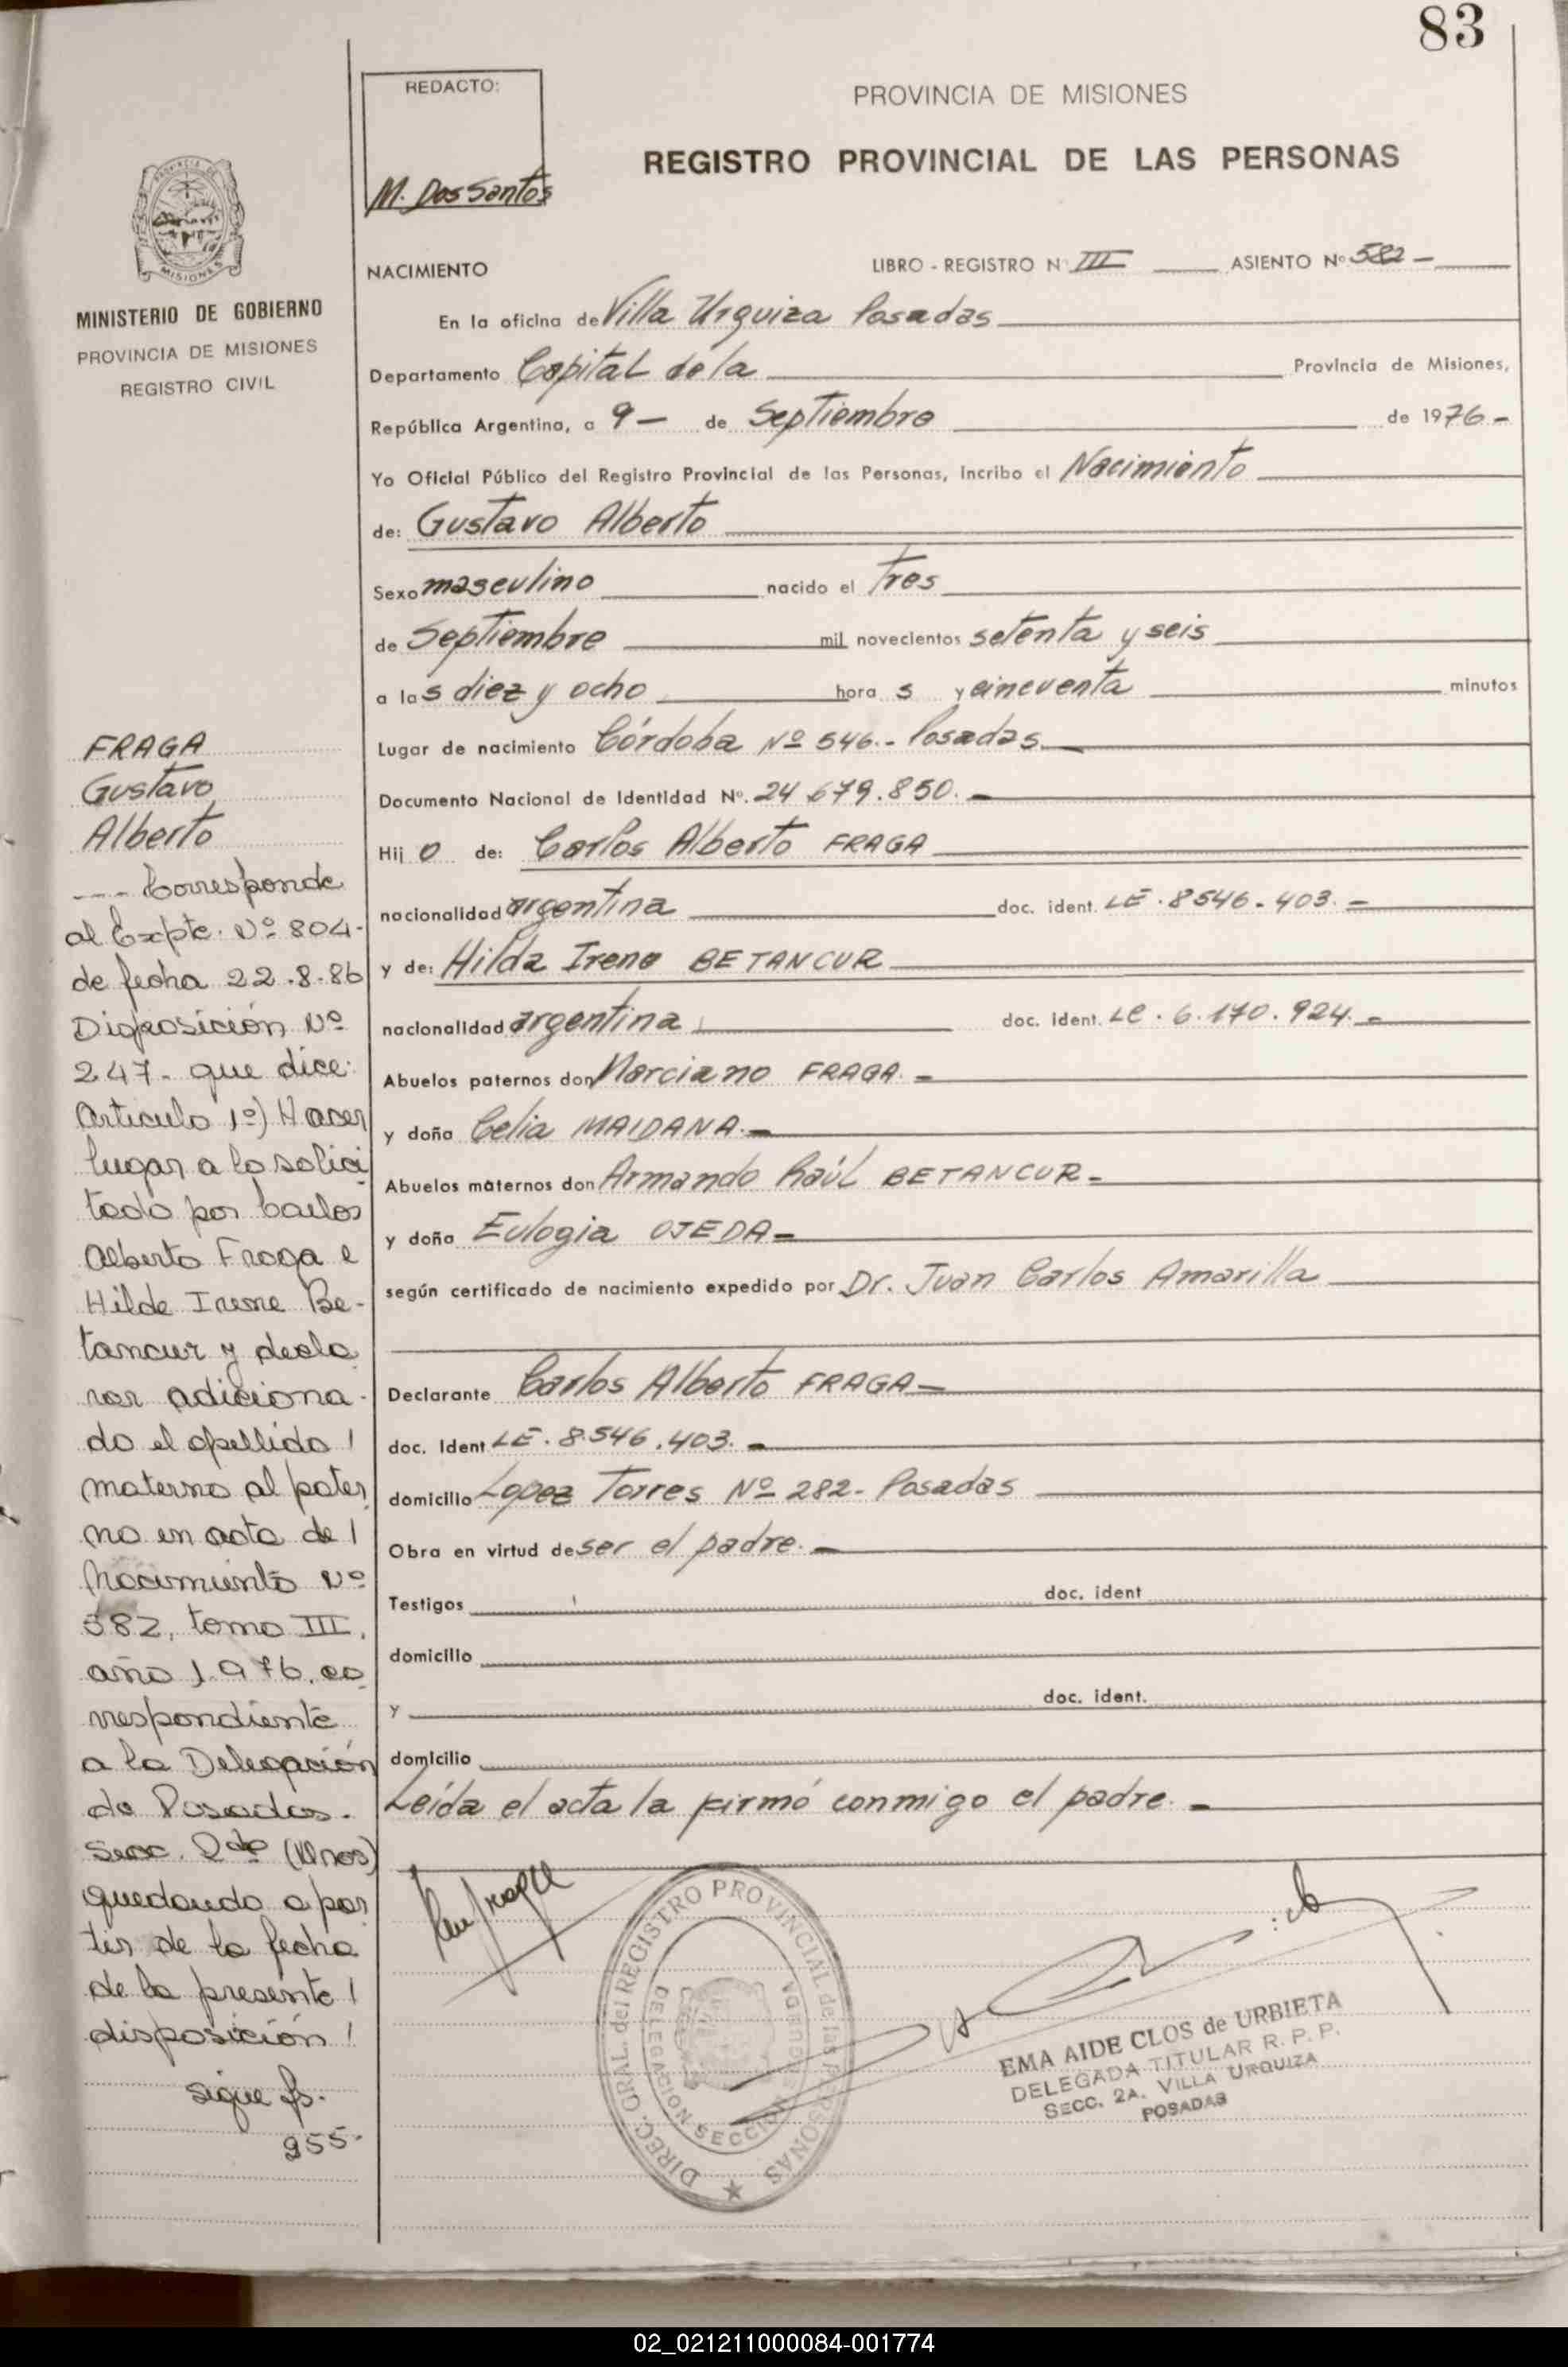 83
REDACTO:
M. Dos Santos
PROVINCIA DE MISIONES
REGISTRO PROVINCIAL DE LAS PERSONAS
NACIMIENTO
LIBRO - REGISTRO N III ASIENTO Nº 582 -
En la oficina de Villa Urquiza Posadas
Departamento Capital de la Provincia de Misiones,
República Argentina, a 9 - de Septiembre de 1976 -
Yo Oficial Público del Registro Provincial de las Personas, incribo el Nacimiento
de: Gustavo Alberto
Sexo masculino nacido el Tres
de Septiembre mil novecientos setenta y seis
a las diez y ocho horas y cincuenta minutos
Lugar de nacimiento Córdoba Nº 546.- Posadas
Documento Nacional de Identidad Nº. 24.679.850. -
Hijo de: Carlos Alberto FRAGA
nacionalidad argentina doc. ident. LE. 8546.403. -
y de: Hilda Irene BETANCUR
nacionalidad argentina doc. ident. LC. 6.170.924. -
Abuelos paternos don Marciano FRAGA. -
y doña Celia MAIDANA. -
Abuelos maternos don Armando Raúl BETANCUR -
y doña Eulogia OJEDA -
según certificado de nacimiento expedido por Dr. Juan Carlos Amarilla
Declarante Carlos Alberto FRAGA -
doc. Ident LE. 8.546.403. -
domicilio Lopez Torres Nº 282 - Posadas
Obra en virtud de ser el padre. -
Testigos doc. ident
domicilio
y doc. ident.
domicilio
Leída el acta la firmó conmigo el padre. -
DIREC. GRAL. del REGISTRO PROVINCIAL de las PERSONAS
DELEGACION SECCION
EMA AIDE CLOS de URBIETA
DELEGADA TITULAR R. P. P.
SECC. 2A. VILLA URQUIZA
POSADAS
PROVINCIA DE
MISIONES
MINISTERIO DE GOBIERNO
PROVINCIA DE MISIONES
REGISTRO CIVIL
FRAGA
Gustavo
Alberto
---- Corresponde
al Expte. Nº 804-
de fecha 22.8.86
Disposición Nº
247- que dice:
Articulo 1º) Hacer
lugar a lo solici
tado por Carlos
Alberto Fraga e
Hilda Irene Be-
tancur y decla
rar adiciona-
do el apellido
materno al pater
no en acta de
Nacimiento Nº
582, tomo III,
año 1.976, co
rrespondiente
a la Delegación
de Posadas.
Secc. 2da (Vnos)
quedando a par
tir de la fecha
de la presente
disposición
sigue fs.
255-
02_021211000084-001774